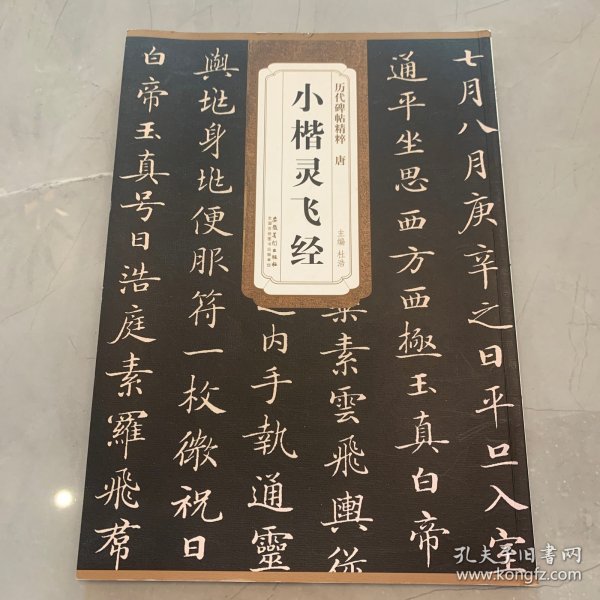 七月八月庚辛之日平旦入室
通平坐思西方西極玉真白帝
素雲飛輿從
之内手執通靈
與䶵身䶵便服符一枚微祝日
白帝玉真号曰浩庭素羅飛帬
历代碑帖精粹 唐
小楷灵飞经
主编 杜浩
安徽美术出版社
孔夫子旧书网
www.kongfz.com